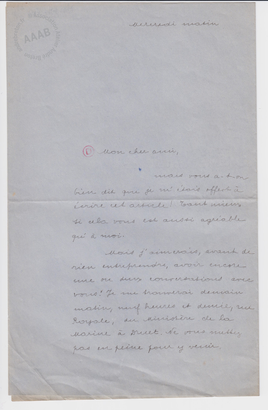 AAAB
Mercredi matin
Mon cher ami,
Mais vous a-t-on
bien dit que je m'étais offert à
écrire cet article ! Tant mieux
si cela vous est aussi agréable
qu'à moi.
Mais j'aimerais, avant de
rien entreprendre, avoir encore
une ou deux conversations avec
vous ! Je me trouverai demain
matin, neuf heures et demie, rue
Royale, au ministère de la
marine à
pas
pour y venir.